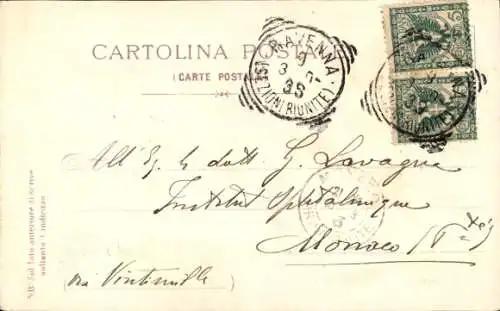 CARTOLINA POSTALE
(CARTE POSTALE)
RAVENNA
(SEZIONI RIUNITE)
All' Eg. dott. G. Lavagna
Institut Ophtalmique
Monaco
via Vintimille
NB. Sul lato anteriore si scrive
soltanto l'indirizzo